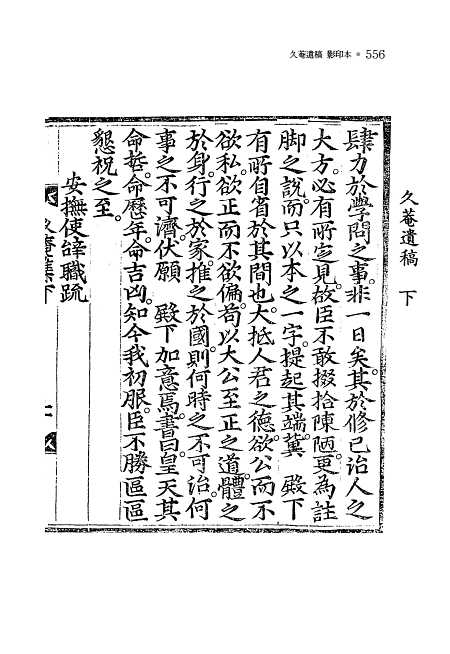 久菴遺稿 影印本 • 556
久菴遺稿 下
肆力於學問之事。非一日矣。其於修己治人之
大方。必有所定見。故臣不敢掇拾陳陋。更為註
脚之說。而只以本之一字。提起其端。冀 殿下
有所自省於其間也。大抵人君之德。欲公而不
欲私。欲正而不欲偏。苟以大公至正之道。體之
於身。行之於家。推之於國。則何時之不可治。何
事之不可濟。伏願 殿下加意焉。書曰。皇天其
命哲。命歷年。命吉凶。知今我初服。臣不勝區區
懇祝之至。
安撫使辭職疏